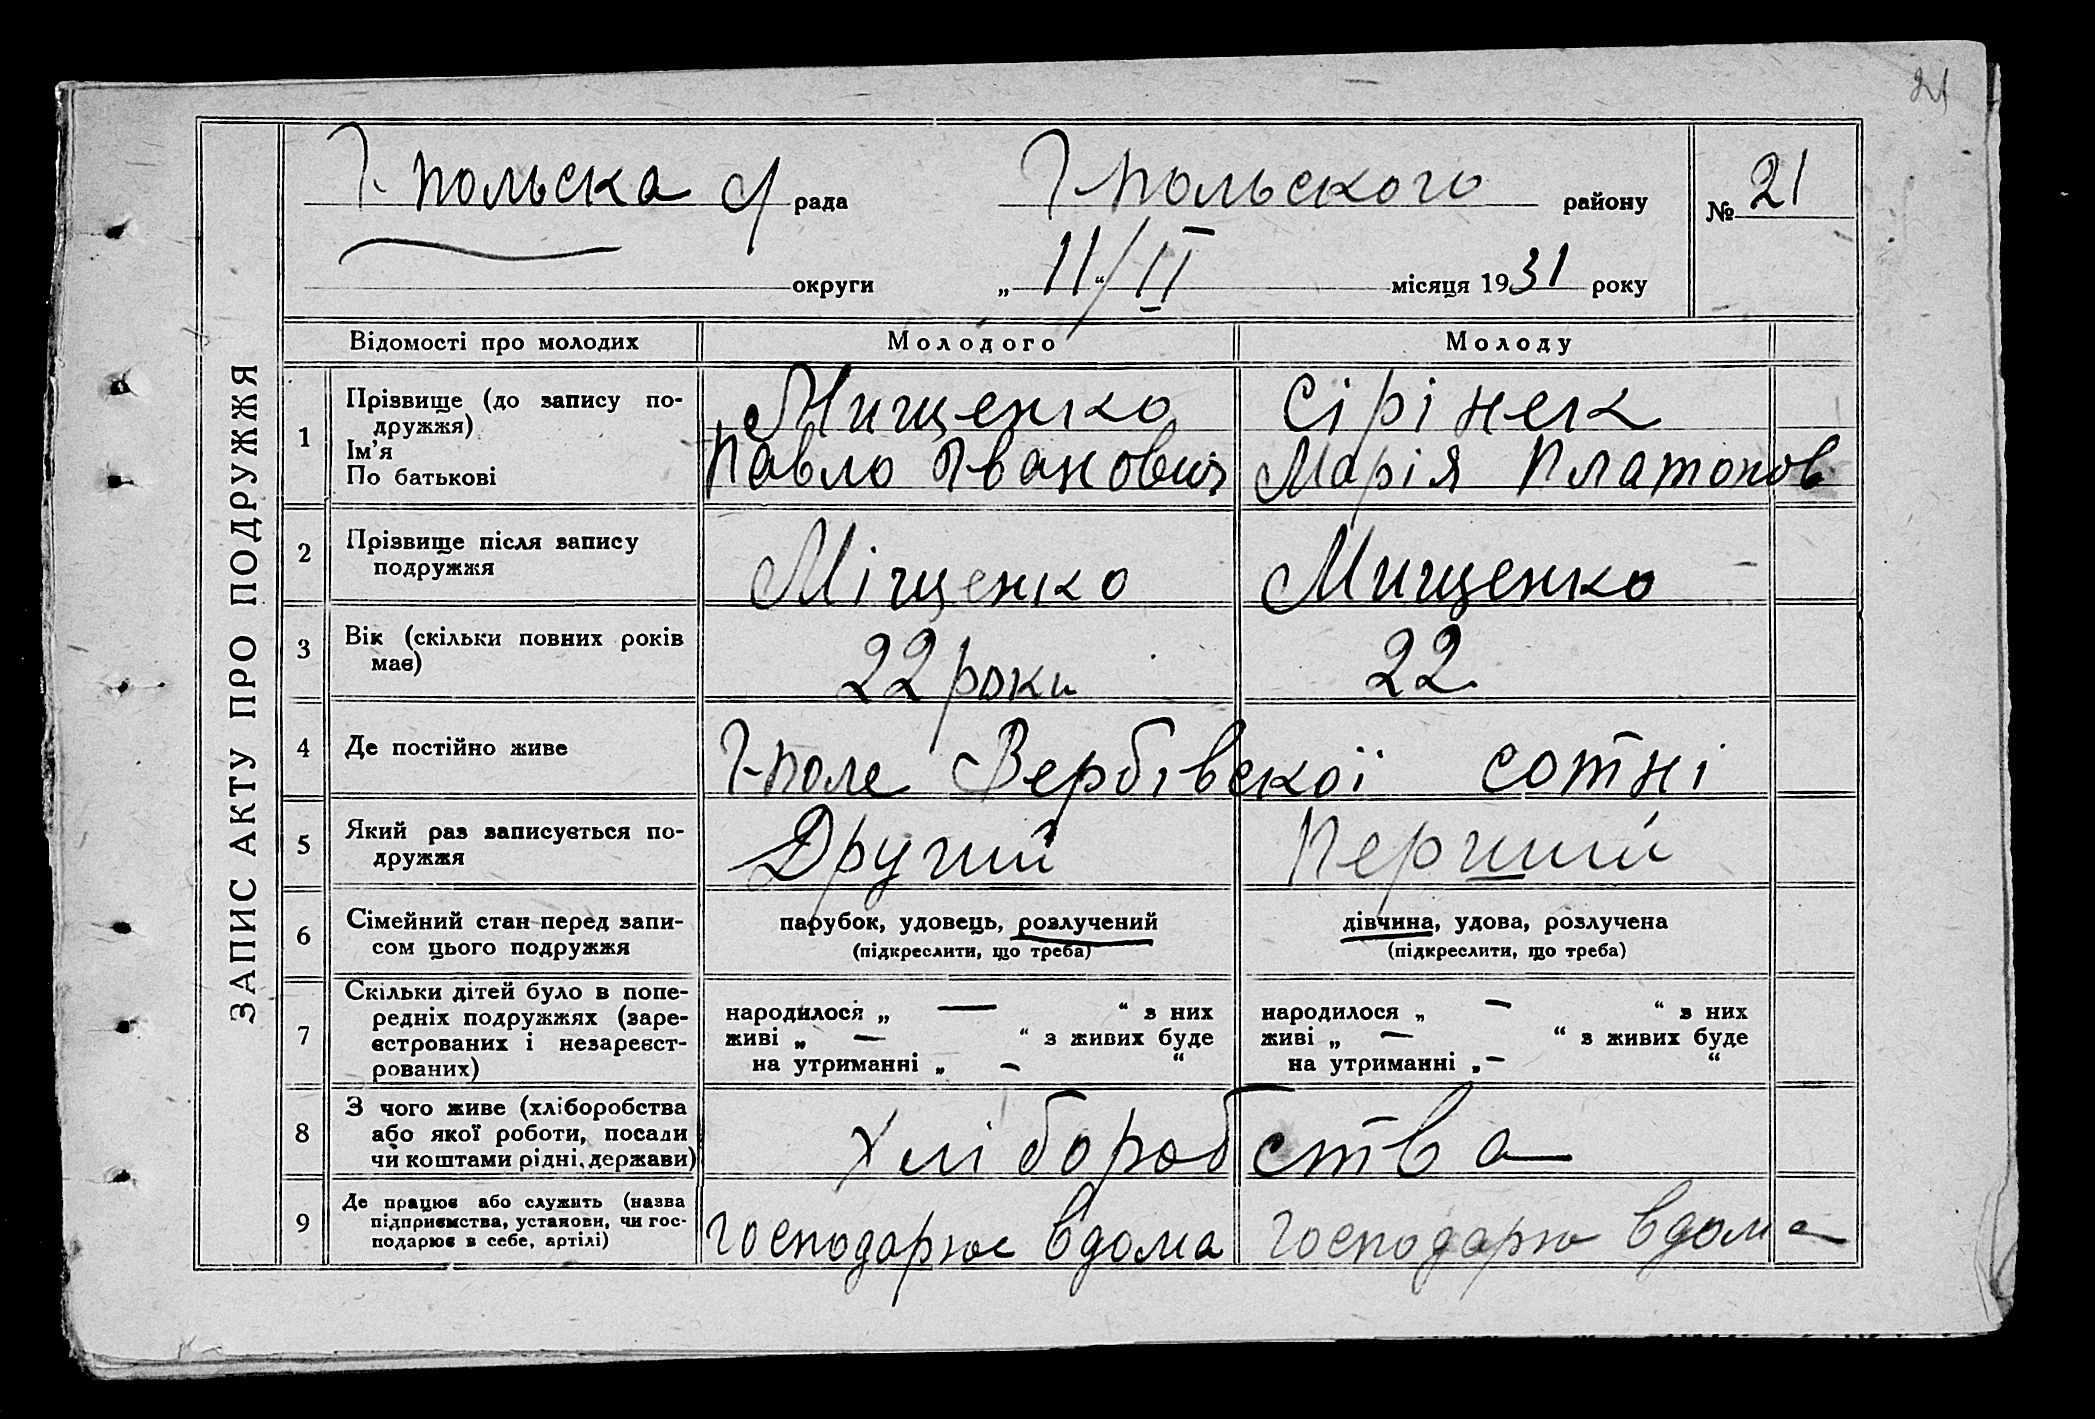 21
Г-польска с/рада
Г-польского району
№ 21
округи
„ 11 “ / II місяця 1931 року
ЗАПИС АКТУ ПРО ПОДРУЖЖЯ
Відомості про молодих
Молодого
Молоду
1
Прізвище (до запису по-
дружжя)
Ім’я
По батькові
Мищенко
Павло Іванович
Сірінек
Марія Платонов
2
Прізвище після запису
подружжя
Міщенко
Мищенко
3
Вік (скільки повних років
має)
22 роки
22
4
Де постійно живе
Г-поле Вербівскої сотні
5
Який раз записується по-
дружжя
Другий
Перший
6
Сімейний стан перед запи-
сом цього подружжя
парубок, удовець, розлучений
(підкреслити, що треба)
дівчина, удова, розлучена
(підкреслити, що треба)
7
Скільки дітей було в попе-
редніх подружжях (заре-
єстрованих і незареєст-
рованих)
народилося „ — “ з них
живі „ — “ з живих буде
на утриманні „ — “
народилося „ — “ з них
живі „ — “ з живих буде
на утриманні „ — “
8
З чого живе (хліборобства
або якої роботи, посади
чи коштами рідні, держави)
хліборобства
9
Де працює або служить (назва
підприємства, установи, чи гос-
подарює в себе, артілі)
господарює вдома
господарю вдома